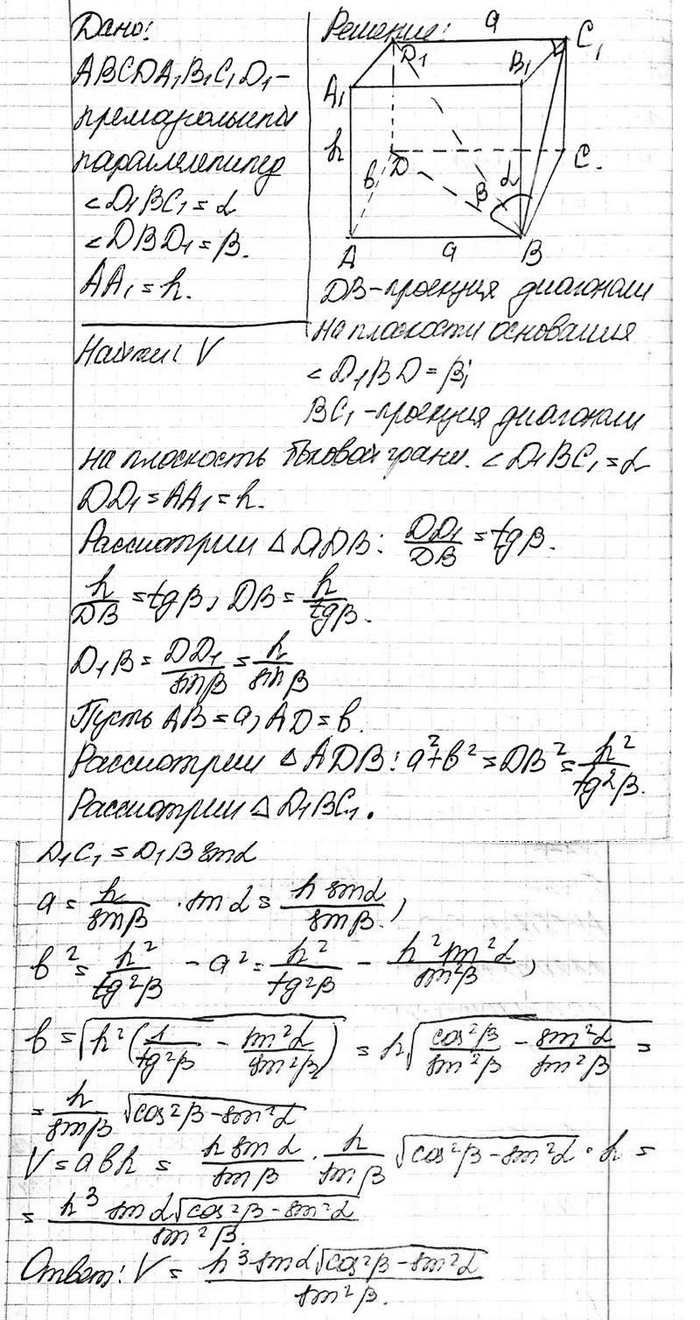 Дано:
ABCDA₁B₁C₁D₁ –
прямоугольный
параллелепипед
∠D₁BC₁ = α
∠DBD₁ = β.
AA₁ = h.
Найти: V
Решение:
a
D₁
C₁
A₁
B₁
h
b
D
C
β
α
A
a
B
DB – проекция диагонали
на плоскости основания
∠D₁BD = β;
BC₁ – проекция диагонали
на плоскость боковой грани. ∠D₁BC₁ = α
DD₁ = AA₁ = h.
Рассмотрим △D₁DB: DD₁/DB = tgβ.
h/DB = tgβ, DB = h/tgβ.
D₁B = DD₁/sinβ = h/sinβ
Пусть AB = a, AD = b.
Рассмотрим △ADB: a² + b² = DB² = h²/tg²β.
Рассмотрим △D₁BC₁.
D₁C₁ = D₁B sinα
a = h/sinβ · sinα = h sinα/sinβ.,
b² = h²/tg²β – a² = h²/tg²β – h² sin²α/sin²β,
b = √(h²(1/tg²β – sin²α/sin²β)) = h√(cos²β/sin²β – sin²α/sin²β) =
= h/sinβ √(cos²β – sin²α)
V = abh = h sinα/sinβ · h/sinβ √(cos²β – sin²α) · h =
= h³ sinα√(cos²β – sin²α)/sin²β.
Ответ: V = h³ sinα√(cos²β – sin²α)/sin²β.